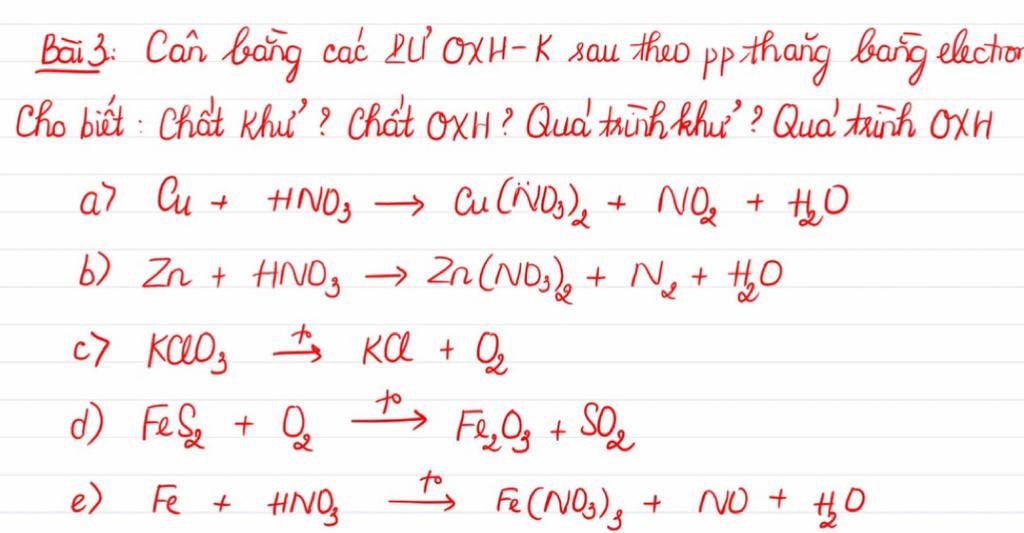 Bài 3: Cân bằng các PƯ OXH-K sau theo pp thăng bằng electron
Cho biết : Chất khử ? Chất OXH ? Quá trình khử ? Quá trình OXH
a) Cu + HNO₃ → Cu(NO₃)₂ + NO₂ + H₂O
b) Zn + HNO₃ → Zn(NO₃)₂ + N₂ + H₂O
c) KClO₃ →(t°) KCl + O₂
d) FeS₂ + O₂ →(t°) Fe₂O₃ + SO₂
e) Fe + HNO₃ →(t°) Fe(NO₃)₃ + NO + H₂O